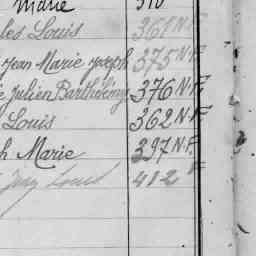 Marie 310
les Louis 361 N.F.
Jean Marie Joseph 375 N.F.
e Julien Barthélemy 376 N.F.
Louis 362 N.F.
h Marie 397 N.F.
Louis 412 F